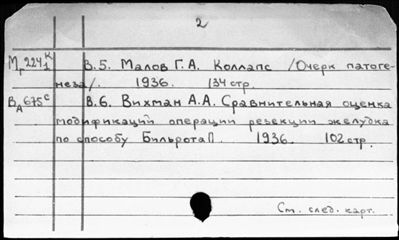 2
Мг 224к/1 В.5. Малов Г.А. Коллапс /Очерк патоге-
неза/. 1936. 134 стр.
ВА 675с В.6. Вихман А.А. Сравнительная оценка
модификаций операции резекции желудка
по способу Бильрота II. 1936. 102 стр.
См. след. карт.